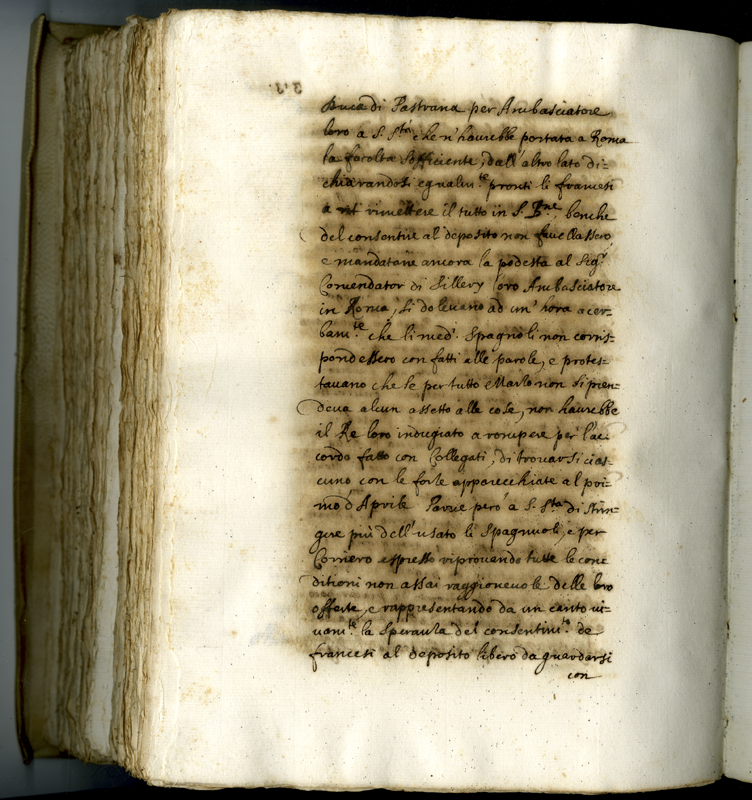 Duca di Pastrana per Ambasciatore
loro a S. Sta. che n'haurebbe portata a Roma
la facoltà sofficiente, dall'altro lato di=
chiarandosi egualmte. pronti li francesi
a rimettere il tutto in S. Bne., benche
del consentire al deposito non fauellassero
e mandatane ancora la podestà al Sigr.
Comendator di Sillery loro Ambasciatore
in Roma, si doleuano ad un' hora acer=
bamte. che li med. Spagnoli non corris=
pondessero con fatti alle parole, e protes=
tauano che se per tutto Marzo non si pren=
deua alcun assetto alle cose, non haurebbe
il Re loro indugiato a rompere per l'ac=
cordo fatto con Collegati, di trouarsi cias=
cuno con le forze apparecchiate al pri=
mo d'Aprile Parue però a S. Sta. di strin=
gere più dell'usato li Spagnuoli, e per
Corriero espresso riprouando tutte le con=
ditioni non assai raggioneuole delle loro
offerte, e rappresentando da un canto ui=
uamte. la speranza del consentimto. de
francesi al deposito libero da guardarsi
con